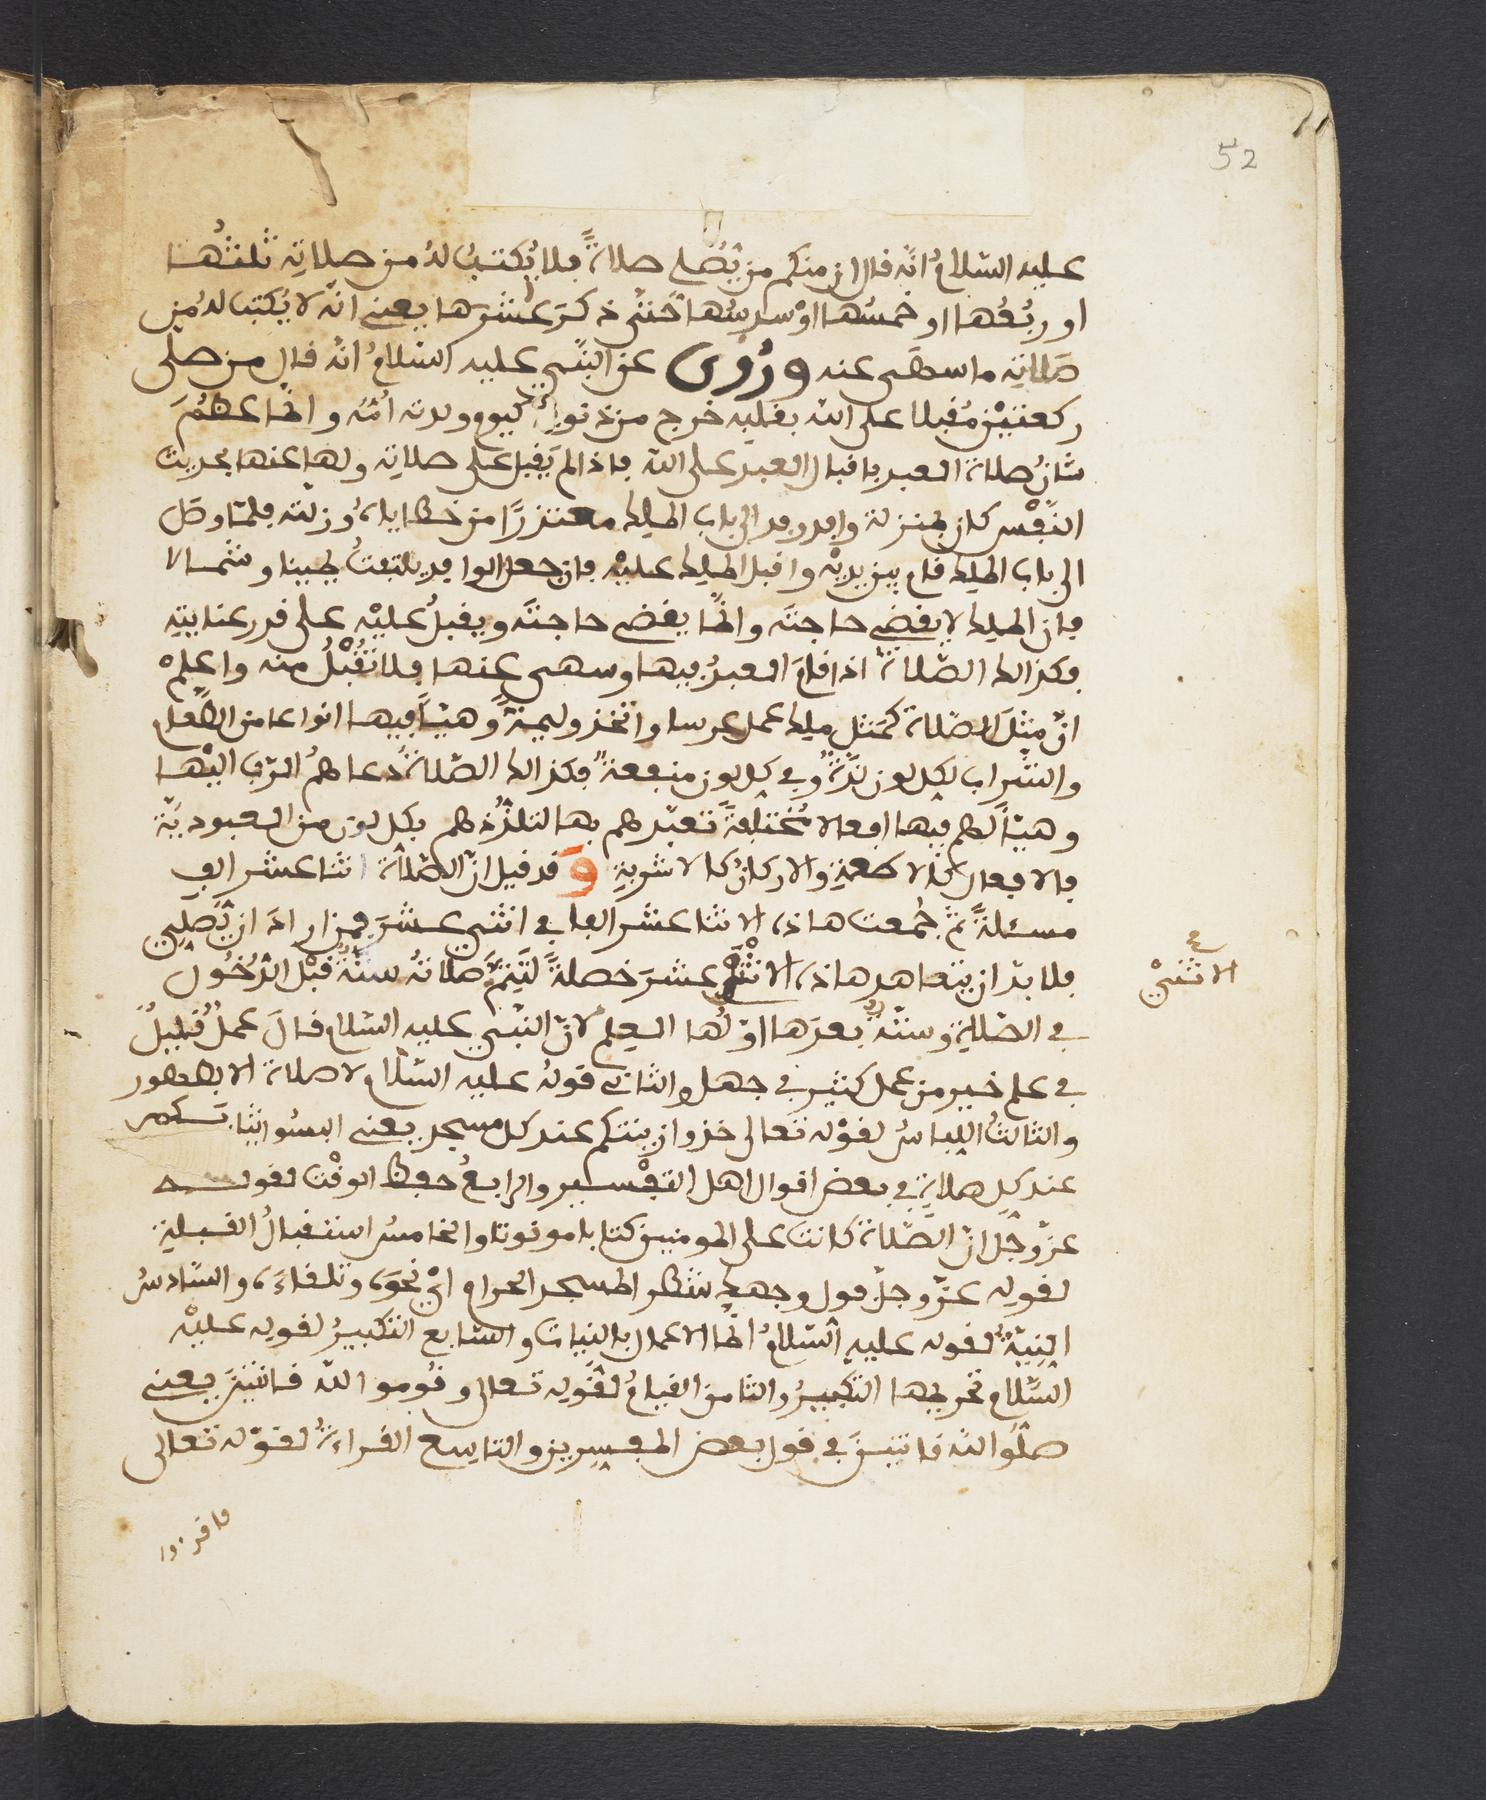 52
عليه السّلامُ انّه قال ان منكم من يُصلى صلاةً فلا يُكتبُ لهُ من صلاتِه ثلثُها
او ربُعُها او خمسُها اوْ سدسُها حتّى ذكرَ عشرَها يعنى انّه لا يُكتب لهُ من
صَلاتِه ما سهَى عنه ورُوى عن النبّي عليه السّلامُ انّهُ قال من صلّى
ركعتيْن مُقبلا على اللّه بقلبِه خرج من ذنوبه كيوم ولدته امُّهُ وانّما عظُمَ
شانُ صلاة العبد باقبال العبد على اللّه فاذا لم يَقبل على صلاتِه ولها عنها بحديث
النّفْس كان بمنزلة وافد وفد الى باب الملِك معتذرًا من خطاياهُ وزلّته فلمّا وصَل
الى باب الملِك قام بين يديْه واقبل الملِك عليْه فان جعل الوافد يلتفتُ يمينا وشمالا
فان الملِك لا يقضى حاجته وانّما يقضى حاجتَه ويقبلُ عليْه على قدر عنايتِه
فكذالك الصّلاة اذا قامَ العبدُ فيها وسهى عنها فلا تُقْبلُ منه واعلم
انّ مثلَ الصّلاة كمَثل ملِك عمل عرسا واتّخذ وليمةً وهيّأ فيها انواعا من الطّعام
والشراب لكل لون لذّةٌ وفى كل لون منفعةٌ فكذالك الصّلاةُ دعاهمُ الرّب اليْها
وهيّأ لهم فيها افعالا مُختلفةً تعبّدهم بها لتلذُّذهم بكل لون من العبوديّة
فالافعال كالاطعمةِ والاذكارُ كالاشربةِ وَقد قيل انّ الصّلاة اثنا عشر الفِ
مسئلةً ثمّ جُمعت هاذه الاثنا عشر الفا فى اثنى عشرَ فمن ارادَ ان يُصلِى
فلا بدّ ان يتعاهد هاذه الاثنَيْ عشرَ خصلةً لتَتِمّ صَلاتُه ستّةٌ قبْل الدّخُول
فى الصّلاة وستّةٌ بعدَها اوّلُها العِلم لانّ النبّي عليه السّلام قالَ عملٌ قليلٌ
فى علم خير من عمل كثير فى جهل والثانى قولهُ عليه السّلام لا صلاة الا بطهور
والثّالثُ اللباسُ لقوْله تعالى خذوا زينتكم عند كل مسجد يعنى البسُوا ثيابكم
عند كل صلاةٍ فى بعض اقوال اهل التّفْسير والرابعُ حفظ الوقْت لقولــه
عزّ وجّل انّ الصّلاة كانت على المومنين كتابا موقوتا والخامسُ استقبالُ القبلةِ
لقوله عزّ وجلّ فول وجهك شطر المسجد الحرام ايْ نحوَه وتلقاءَه والسّادسُ
النِيّةُ لقوله عليه السّلامُ انّما الاعمال بالنيات والسّابع التّكبيرُ لقوله عليْه
السّلام تحريمُها التّكبيرُ والثامن القيامُ لقوْلِه تعالى وقُوموا للّه قانتينَ يعنى
صلُّوا للّه قانتينَ فى قول بعض المفسِرين والتاسع القراءة لقوْله تعالى
الاثنَيْ
فاقرءوا